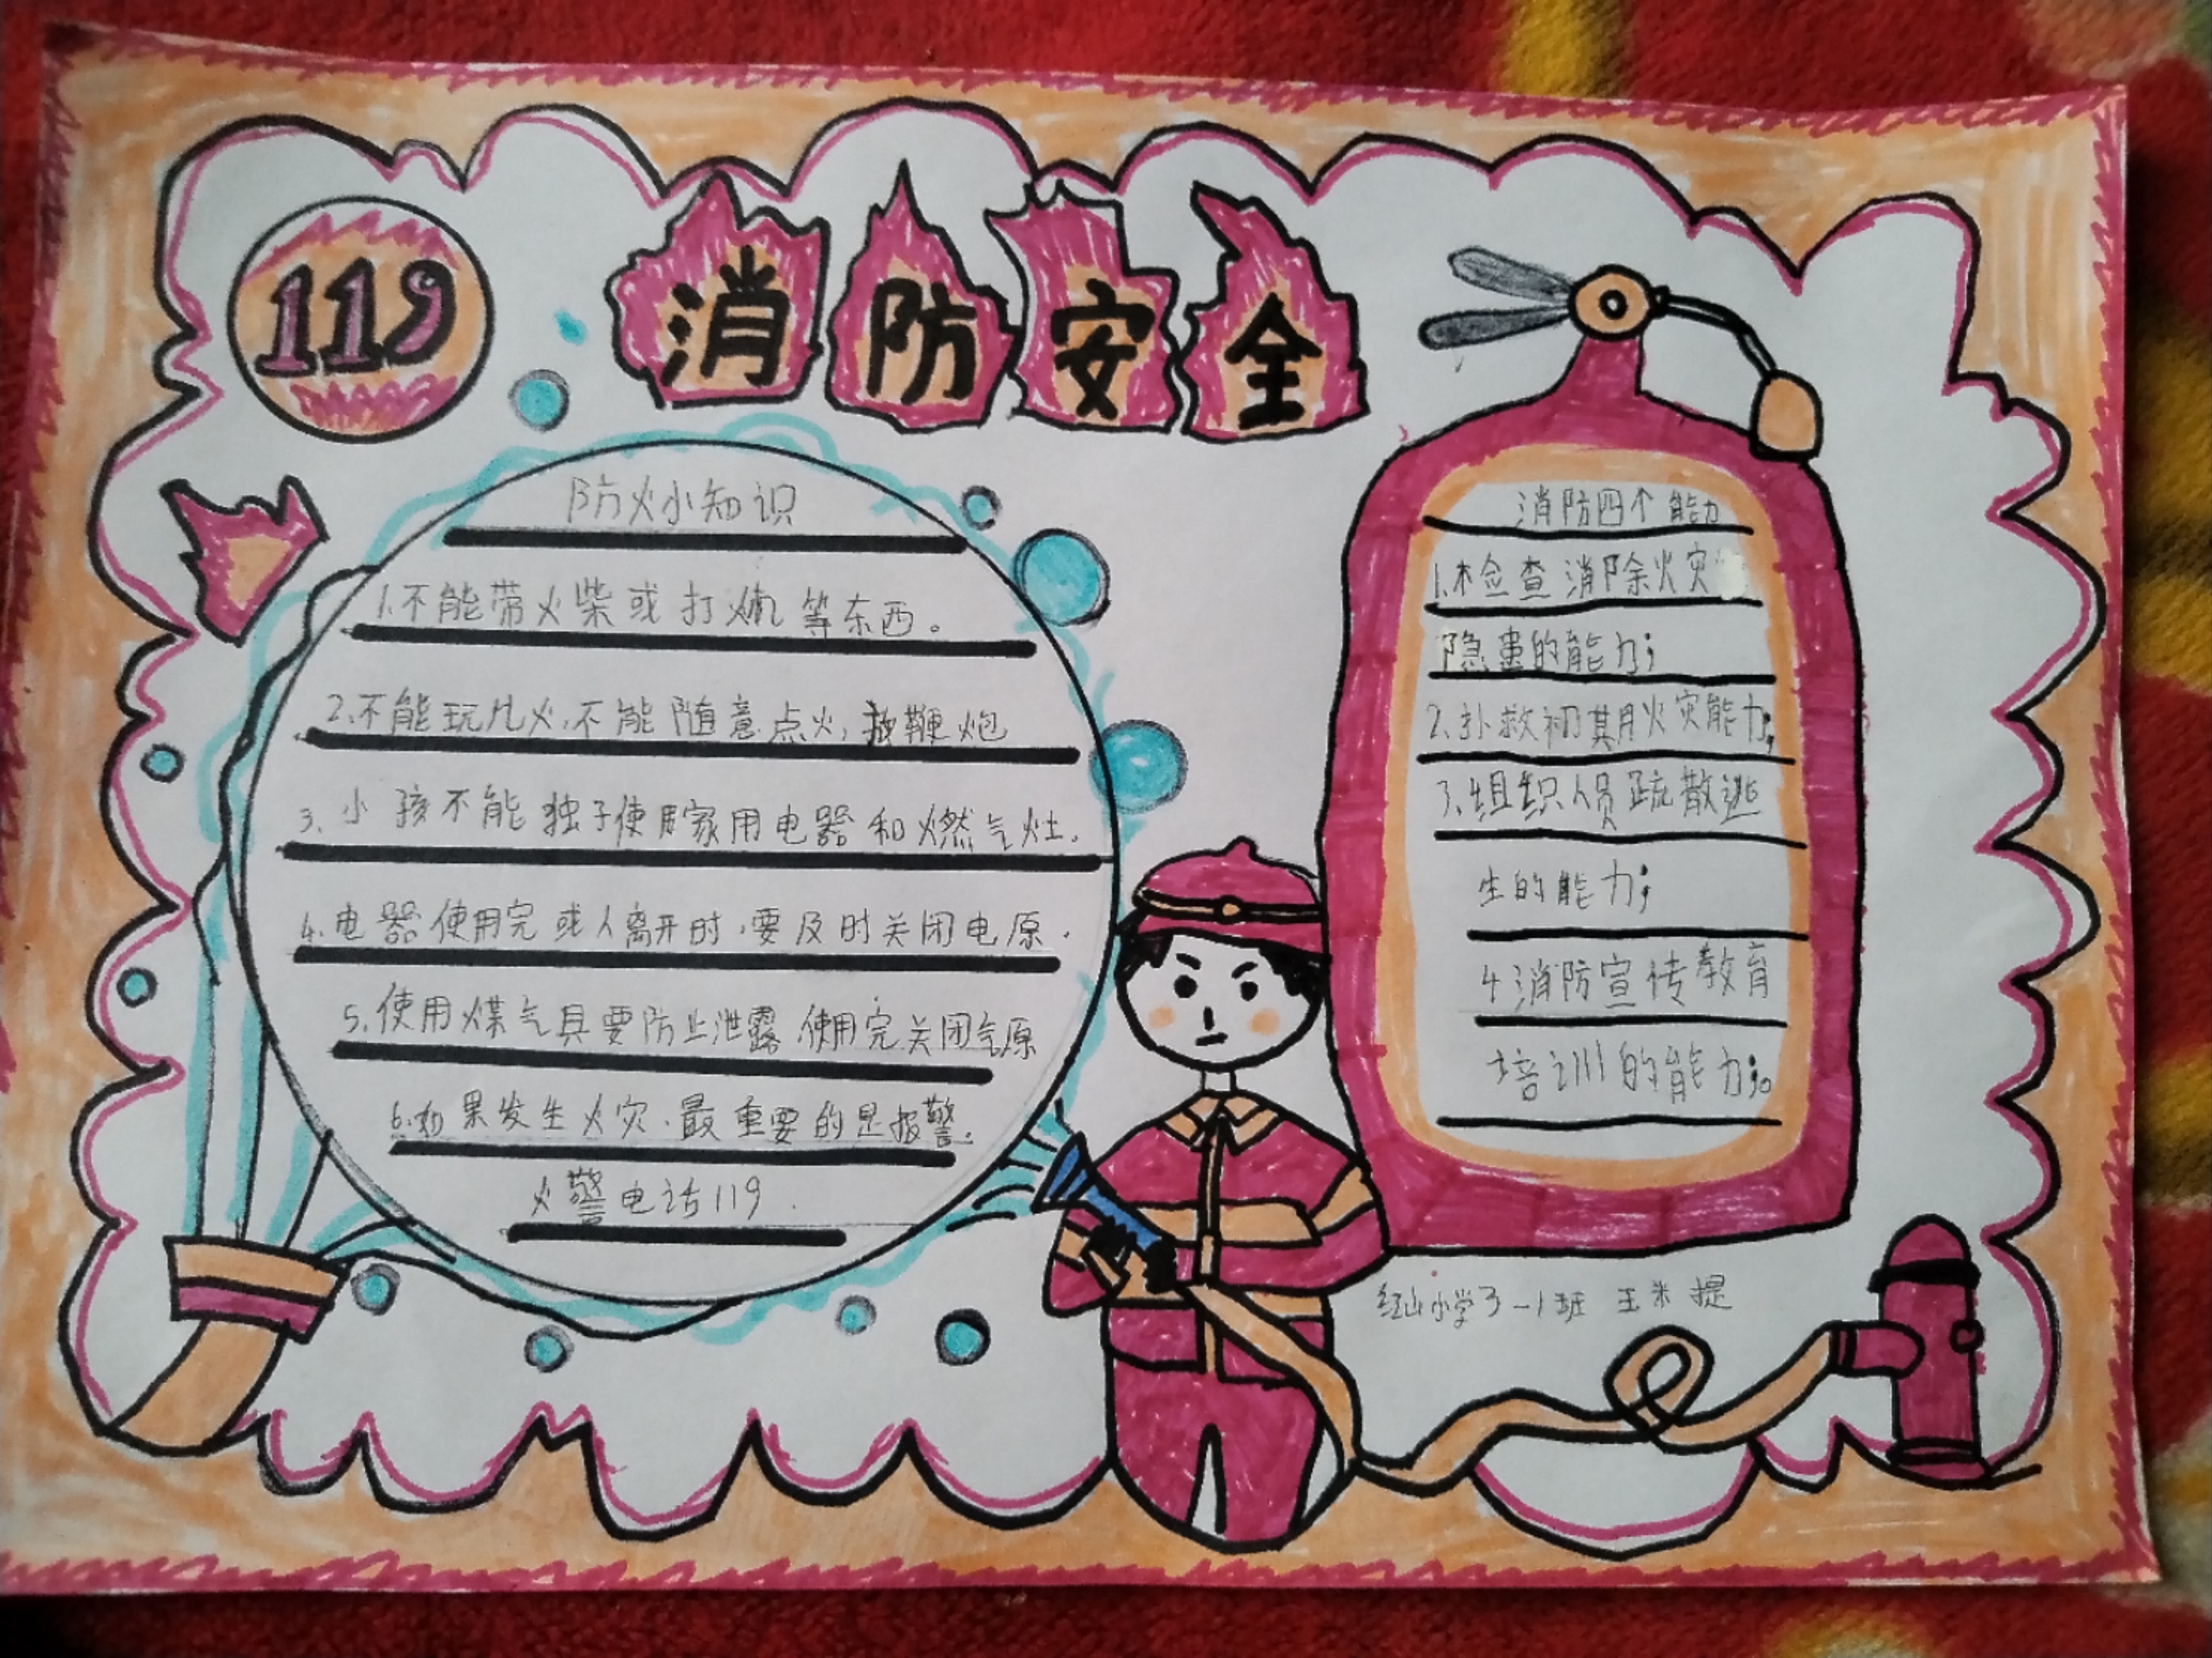 119
消防安全
防火小知识
1.不能带火柴或打火机等东西。
2.不能玩儿火,不能随意点火,放鞭炮
3.小孩不能独子使用家用电器和燃气灶.
4.电器使用完或人离开时,要及时关闭电原.
5.使用煤气具要防止泄露.使用完关闭气原
6.如果发生火灾.最重要的是报警.
火警电话119.
消防四个能力
1.检查消除火灾
隐患的能力;
2.扑救初期火灾能力;
3.组织人员疏散逃
生的能力;
4消防宣传教育
培训的能力;。
红山小学3-1班 王米提